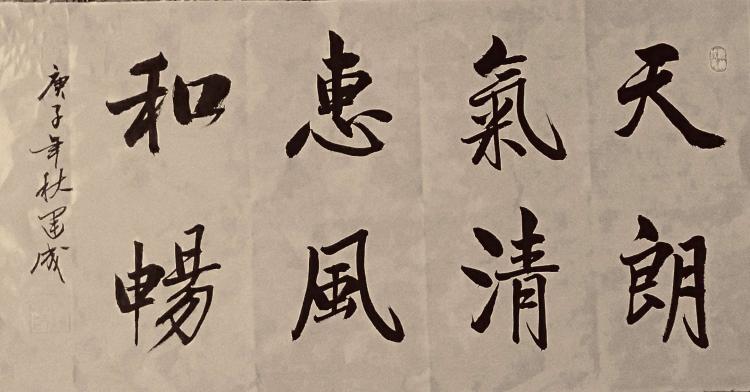 天朗
氣清
惠風
和暢
庚子年秋運成